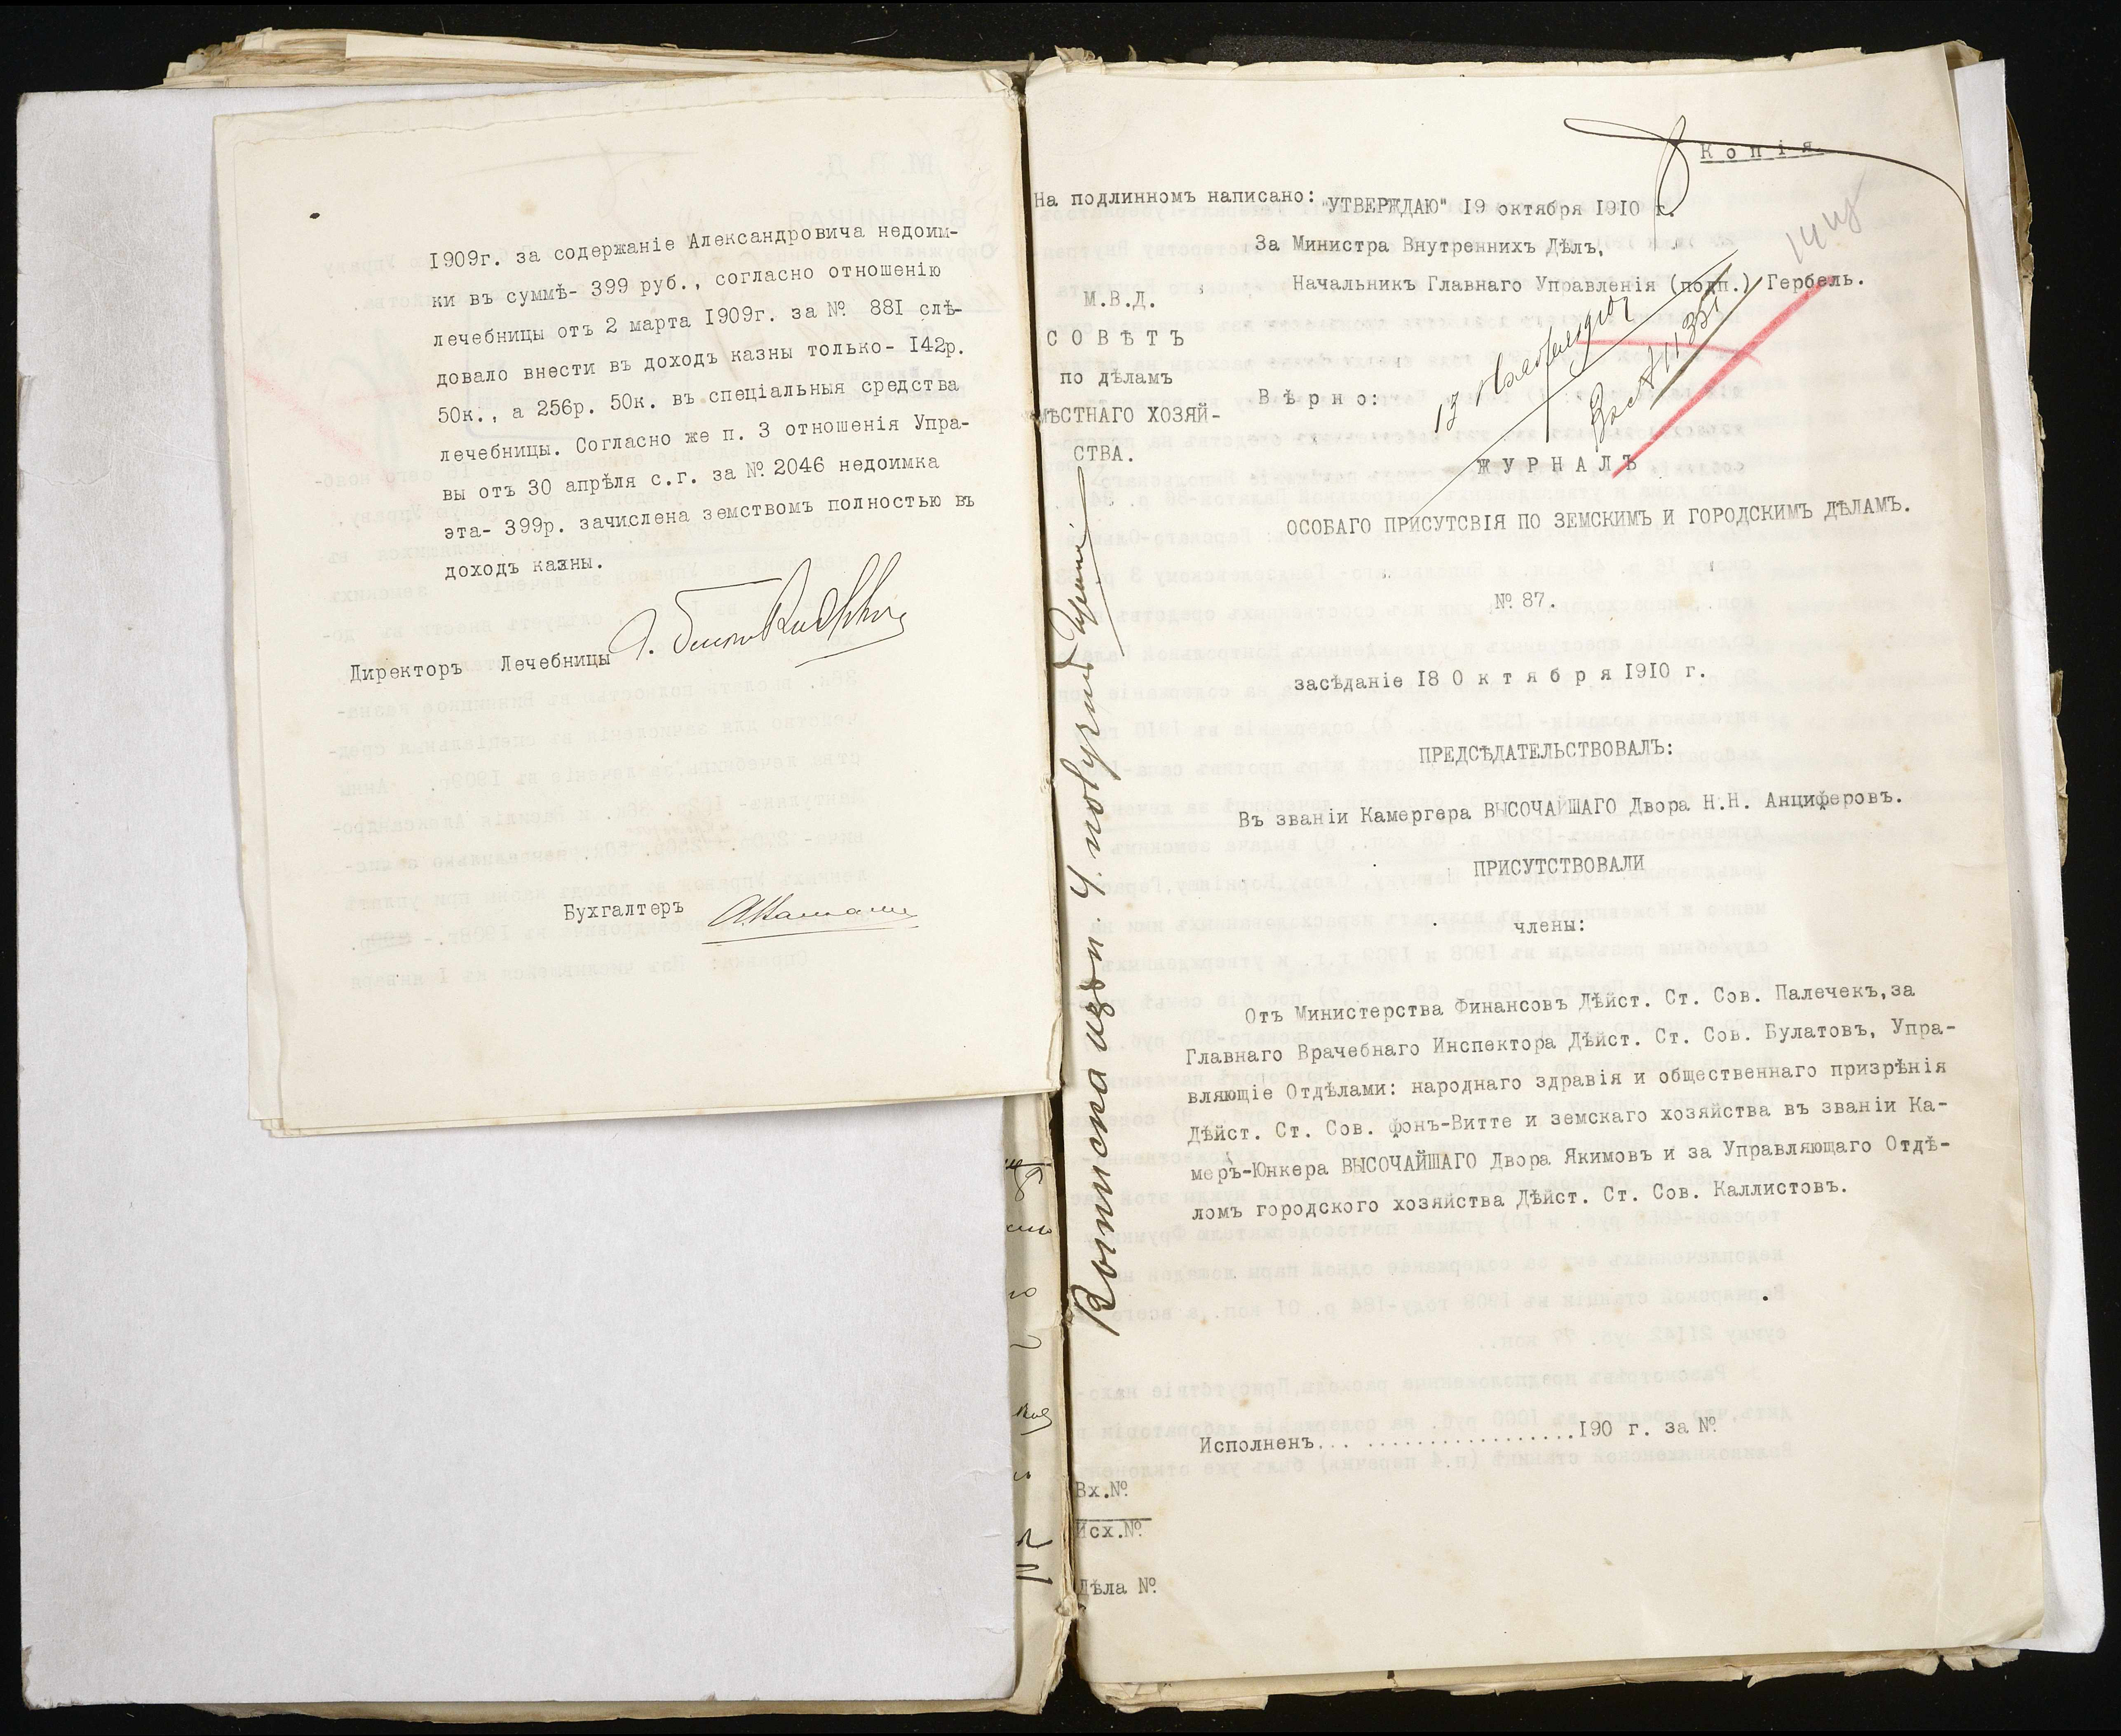 1909г. за содержаніе Александровича недоим-
ки въ суммѣ- 399 руб., согласно отношенію
лечебницы отъ 2 марта 1909г. за № 881 слѣ-
довало внести въ доходъ казны только- 142р.
50к., а 256р. 50к. въ спеціальныя средства
лечебницы. Согласно же п. 3 отношенія Упра-
вы отъ 30 апрѣля с.г. за № 2046 недоимка
эта- 399р. зачислена земствомъ полностью въ
доходъ казны.
Директоръ Лечебницы
Бухгалтеръ
Копія
На подлинномъ написано: "УТВЕРЖДАЮ" 19 октября 1910 г.
За Министра Внутреннихъ Дѣлъ,
Начальникъ Главнаго Управленія (подп.) Гербель.
М.В.Д.
СОВѢТЪ
по дѣламъ
МѢСТНАГО ХОЗЯЙ-
СТВА.
Вѣрно:
ЖУРНАЛЪ
ОСОБАГО ПРИСУТСВІЯ ПО ЗЕМСКИМЪ И ГОРОДСКИМЪ ДѢЛАМЪ.
№ 87.
засѣданіе 18 Октября 1910 г.
ПРЕДСѢДАТЕЛЬСТВОВАЛЪ:
Въ званіи Камергера ВЫСОЧАЙШАГО Двора Н.Н. Анциферовъ.
ПРИСУТСТВОВАЛИ
члены:
Отъ Министерства Финансовъ Дѣйст. Ст. Сов. Палечекъ, за
Главнаго Врачебнаго Инспектора Дѣйст. Ст. Сов. Булатовъ, Упра-
вляющіе Отдѣлами: народнаго здравія и общественнаго призрѣнія
Дѣйст. Ст. Сов. фонъ-Витте и земскаго хозяйства въ званіи Ка-
меръ-Юнкера ВЫСОЧАЙШАГО Двора Якимовъ и за Управляющаго Отдѣ-
ломъ городского хозяйства Дѣйст. Ст. Сов. Каллистовъ.
Исполненъ... ..................190 г. за №
Вх.№
Исх.№
Дѣла №